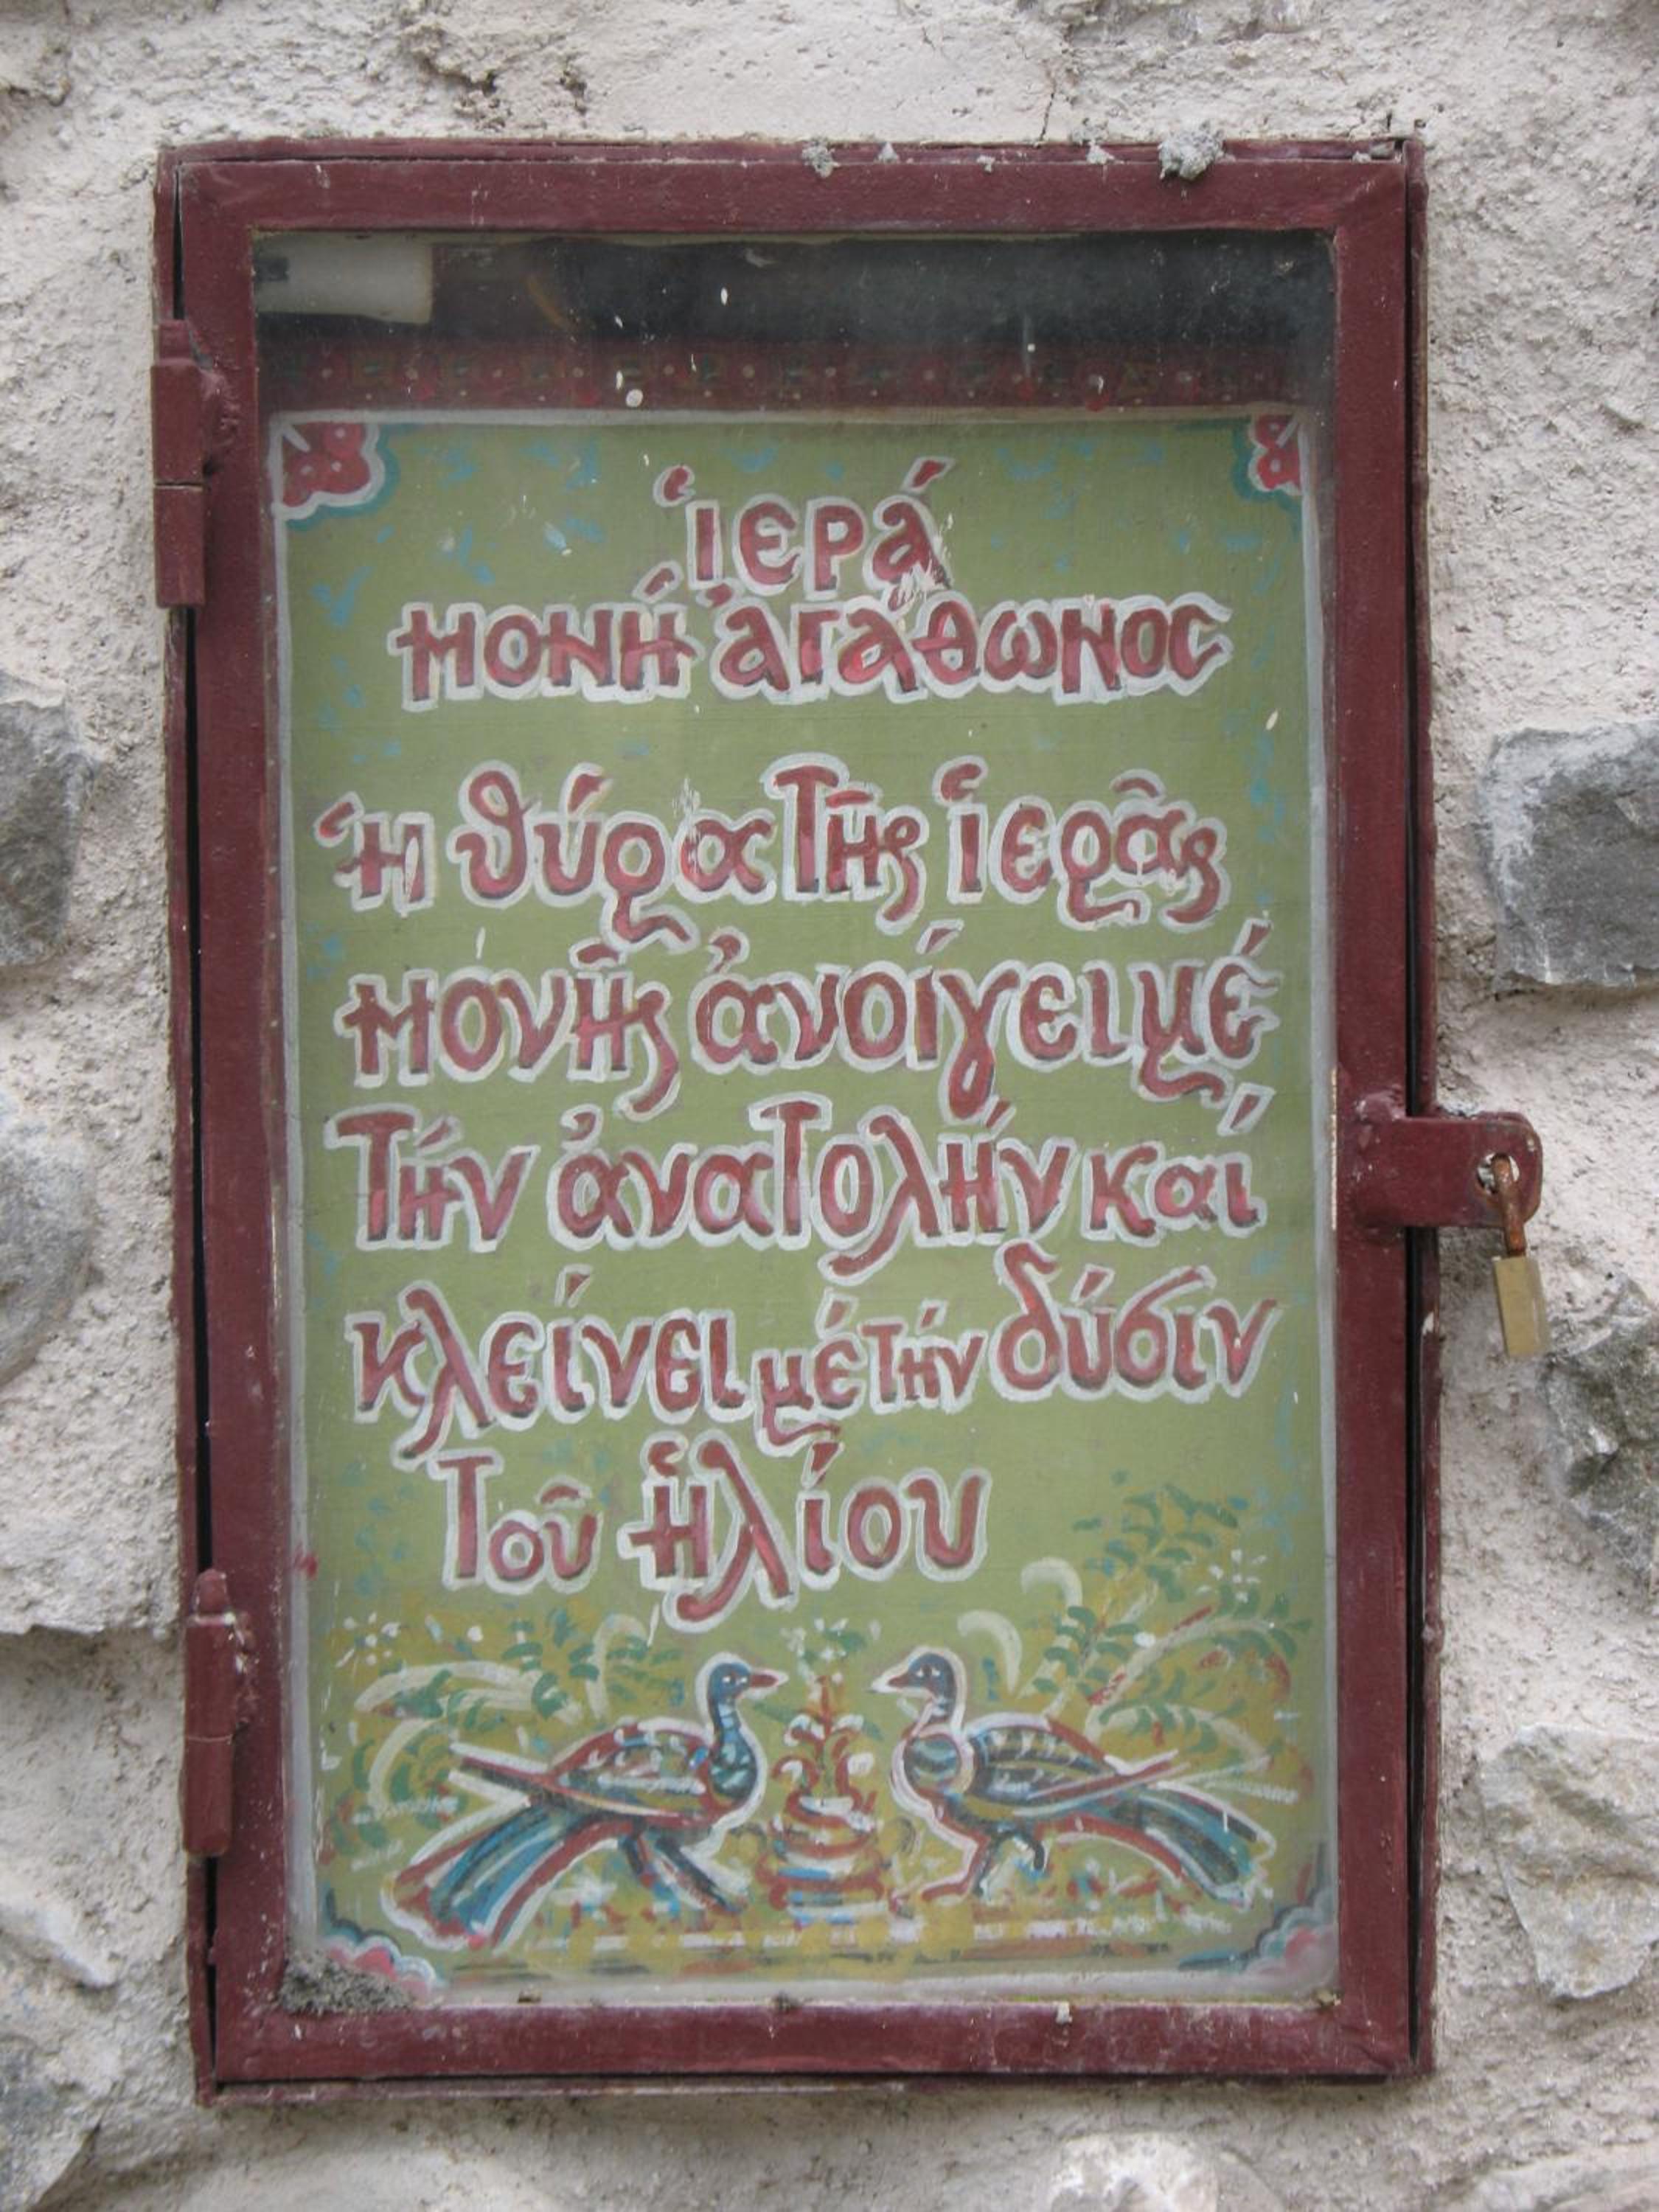 ἱερά
μονή ἀγάθωνος
Ἡ θύρα τῆς ἱερᾶς
μονῆς ἀνοίγει μέ
τήν ἀνατολήν καί
κλείνει μέ τήν δύσιν
τοῦ ἡλίου